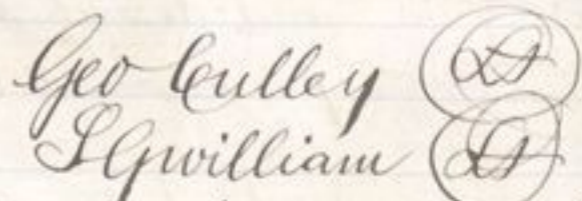 Geo Culley
S Gwilliam